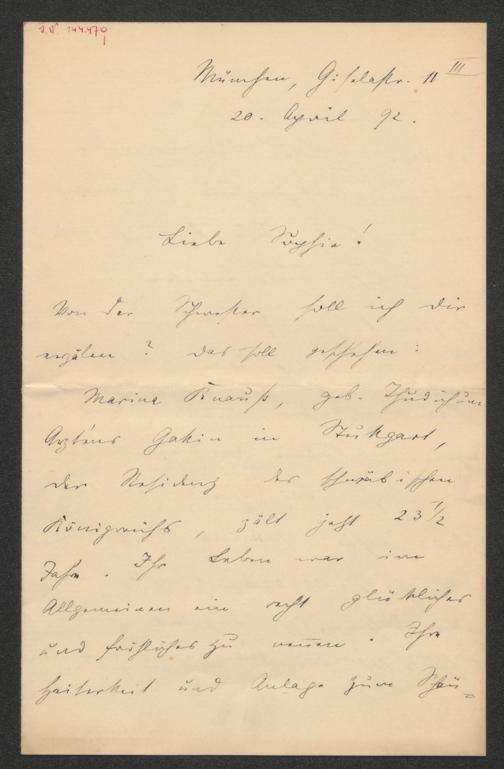 J. N. 144.470
München, Giselastr. 11 III
20. April 92.
Liebe Sophie!
Von der Schwester soll ich dir
erzälen? Das soll geschehen:
Marina Knauß, geb. Thudichum
Arztens Gattin in Stuttgart,
der Residenz des schwäbischen
Königreichs, zält jetzt 23 1/2
Jahre. Ihr Leben war im
Allgemeinen ein recht glückliches
und fröhliches zu nennen. Ihre
Heiterkeit und Anlage zum